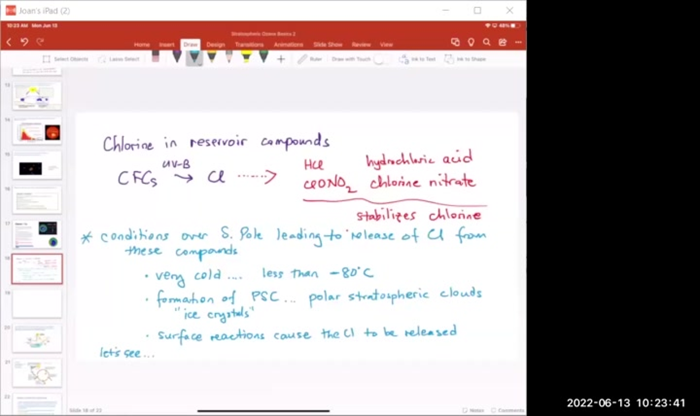 Joan's iPad (2)
10:23 AM Mon Jun 13
48%
Stratospheric Ozone Basics 2
Home Insert Draw Design Transitions Animations Slide Show Review View
Select Objects Lasso Select Ruler Draw with Touch Ink to Text Ink to Shape
Chlorine in reservoir compounds
UV-B
CFCs → Cl ......> HCl hydrochloric acid
ClONO2 chlorine nitrate
stabilizes chlorine
* conditions over S. Pole leading to release of Cl from
these compounds
• very cold .... less than -80°C
• formation of PSC ... polar stratospheric clouds
"ice crystals"
• surface reactions cause the Cl to be released
let's see...
13
14
15
16
17
18
19
20
21
22
Slide 18 of 33
Notes Comments
2022-06-13 10:23:41